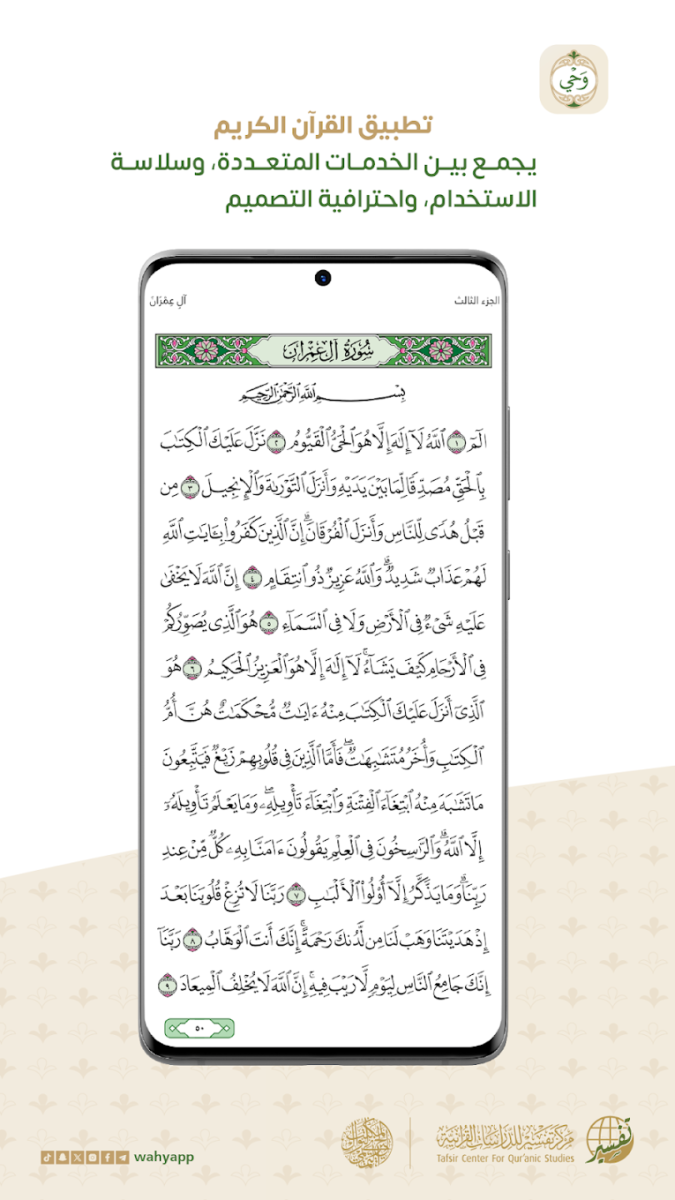 وَحْي
تطبيق القرآن الكريم
يجمـع بيـن الخدمـات المتعـددة، وسلاسـة
الاستخدام، واحترافية التصميم
الجزء الثالث
آل عِمۡرَانَ
سُورَةُ آلِ عِمْرَانَ
بِسۡمِ ٱللَّهِ ٱلرَّحۡمَٰنِ ٱلرَّحِيمِ
الٓمٓ ١ ٱللَّهُ لَآ إِلَٰهَ إِلَّا هُوَ ٱلۡحَيُّ ٱلۡقَيُّومُ ٢ نَزَّلَ عَلَيۡكَ ٱلۡكِتَٰبَ
بِٱلۡحَقِّ مُصَدِّقٗا لِّمَا بَيۡنَ يَدَيۡهِ وَأَنزَلَ ٱلتَّوۡرَىٰةَ وَٱلۡإِنجِيلَ ٣ مِن
قَبۡلُ هُدٗى لِّلنَّاسِ وَأَنزَلَ ٱلۡفُرۡقَانَۗ إِنَّ ٱلَّذِينَ كَفَرُواْ بِـَٔايَٰتِ ٱللَّهِ
لَهُمۡ عَذَابٞ شَدِيدٞۗ وَٱللَّهُ عَزِيزٞ ذُو ٱنتِقَامٍ ٤ إِنَّ ٱللَّهَ لَا يَخۡفَىٰ
عَلَيۡهِ شَيۡءٞ فِي ٱلۡأَرۡضِ وَلَا فِي ٱلسَّمَآءِ ٥ هُوَ ٱلَّذِي يُصَوِّرُكُمۡ
فِي ٱلۡأَرۡحَامِ كَيۡفَ يَشَآءُۚ لَآ إِلَٰهَ إِلَّا هُوَ ٱلۡعَزِيزُ ٱلۡحَكِيمُ ٦ هُوَ
ٱلَّذِيٓ أَنزَلَ عَلَيۡكَ ٱلۡكِتَٰبَ مِنۡهُ ءَايَٰتٞ مُّحۡكَمَٰتٌ هُنَّ أُمُّ
ٱلۡكِتَٰبِ وَأُخَرُ مُتَشَٰبِهَٰتٞۖ فَأَمَّا ٱلَّذِينَ فِي قُلُوبِهِمۡ زَيۡغٞ فَيَتَّبِعُونَ
مَا تَشَٰبَهَ مِنۡهُ ٱبۡتِغَآءَ ٱلۡفِتۡنَةِ وَٱبۡتِغَآءَ تَأۡوِيلِهِۦۖ وَمَا يَعۡلَمُ تَأۡوِيلَهُۥٓ
إِلَّا ٱللَّهُۗ وَٱلرَّٰسِخُونَ فِي ٱلۡعِلۡمِ يَقُولُونَ ءَامَنَّا بِهِۦ كُلّٞ مِّنۡ عِندِ
رَبِّنَاۗ وَمَا يَذَّكَّرُ إِلَّآ أُوْلُواْ ٱلۡأَلۡبَٰبِ ٧ رَبَّنَا لَا تُزِغۡ قُلُوبَنَا بَعۡدَ
إِذۡ هَدَيۡتَنَا وَهَبۡ لَنَا مِن لَّدُنكَ رَحۡمَةًۚ إِنَّكَ أَنتَ ٱلۡوَهَّابُ ٨ رَبَّنَآ
إِنَّكَ جَامِعُ ٱلنَّاسِ لِيَوۡمٖ لَّا رَيۡبَ فِيهِۚ إِنَّ ٱللَّهَ لَا يُخۡلِفُ ٱلۡمِيعَادَ ٩
٥٠
تفسير
مركز تفسير للدراسات القرآنية
Tafsir Center For Qur'anic Studies
wahyapp